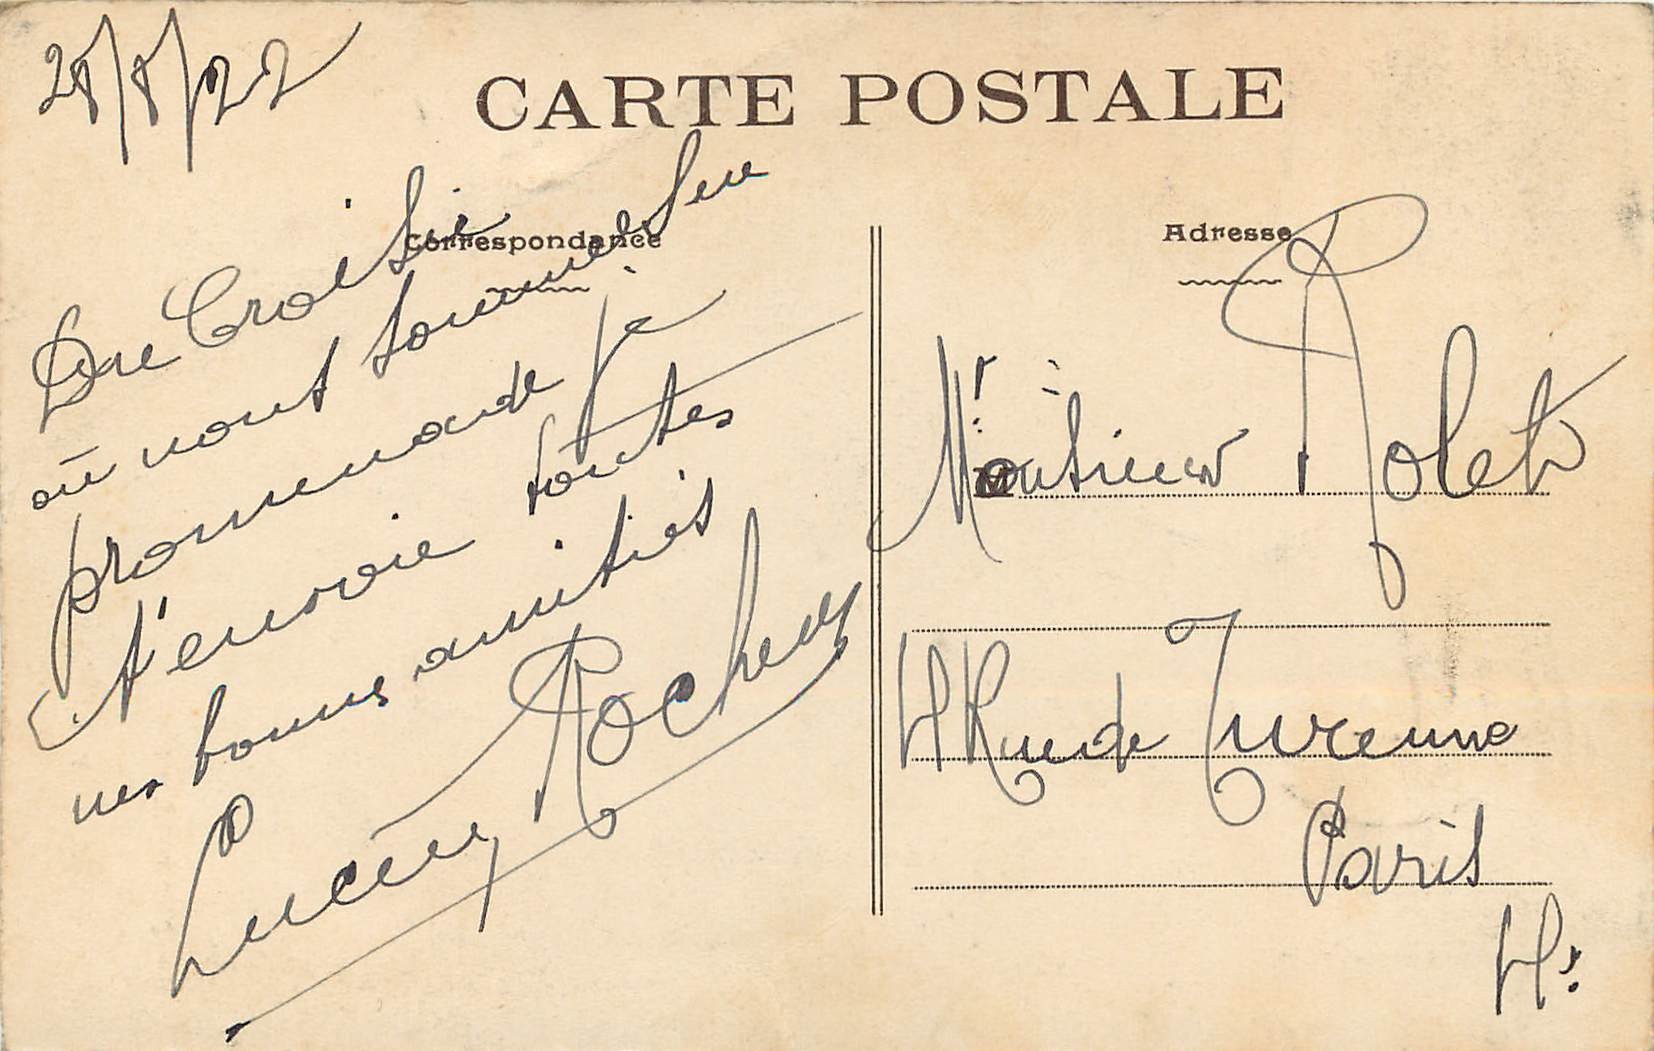 28/8/22
CARTE POSTALE
Correspondance
Du Croisic
où nous sommes en
promenade je
t'envoie toutes
mes bonnes amitiés
Lucien Rocher
Adresse
Mr
M
Monsieur Rolet
4 Rue de Turenne
Paris
4e